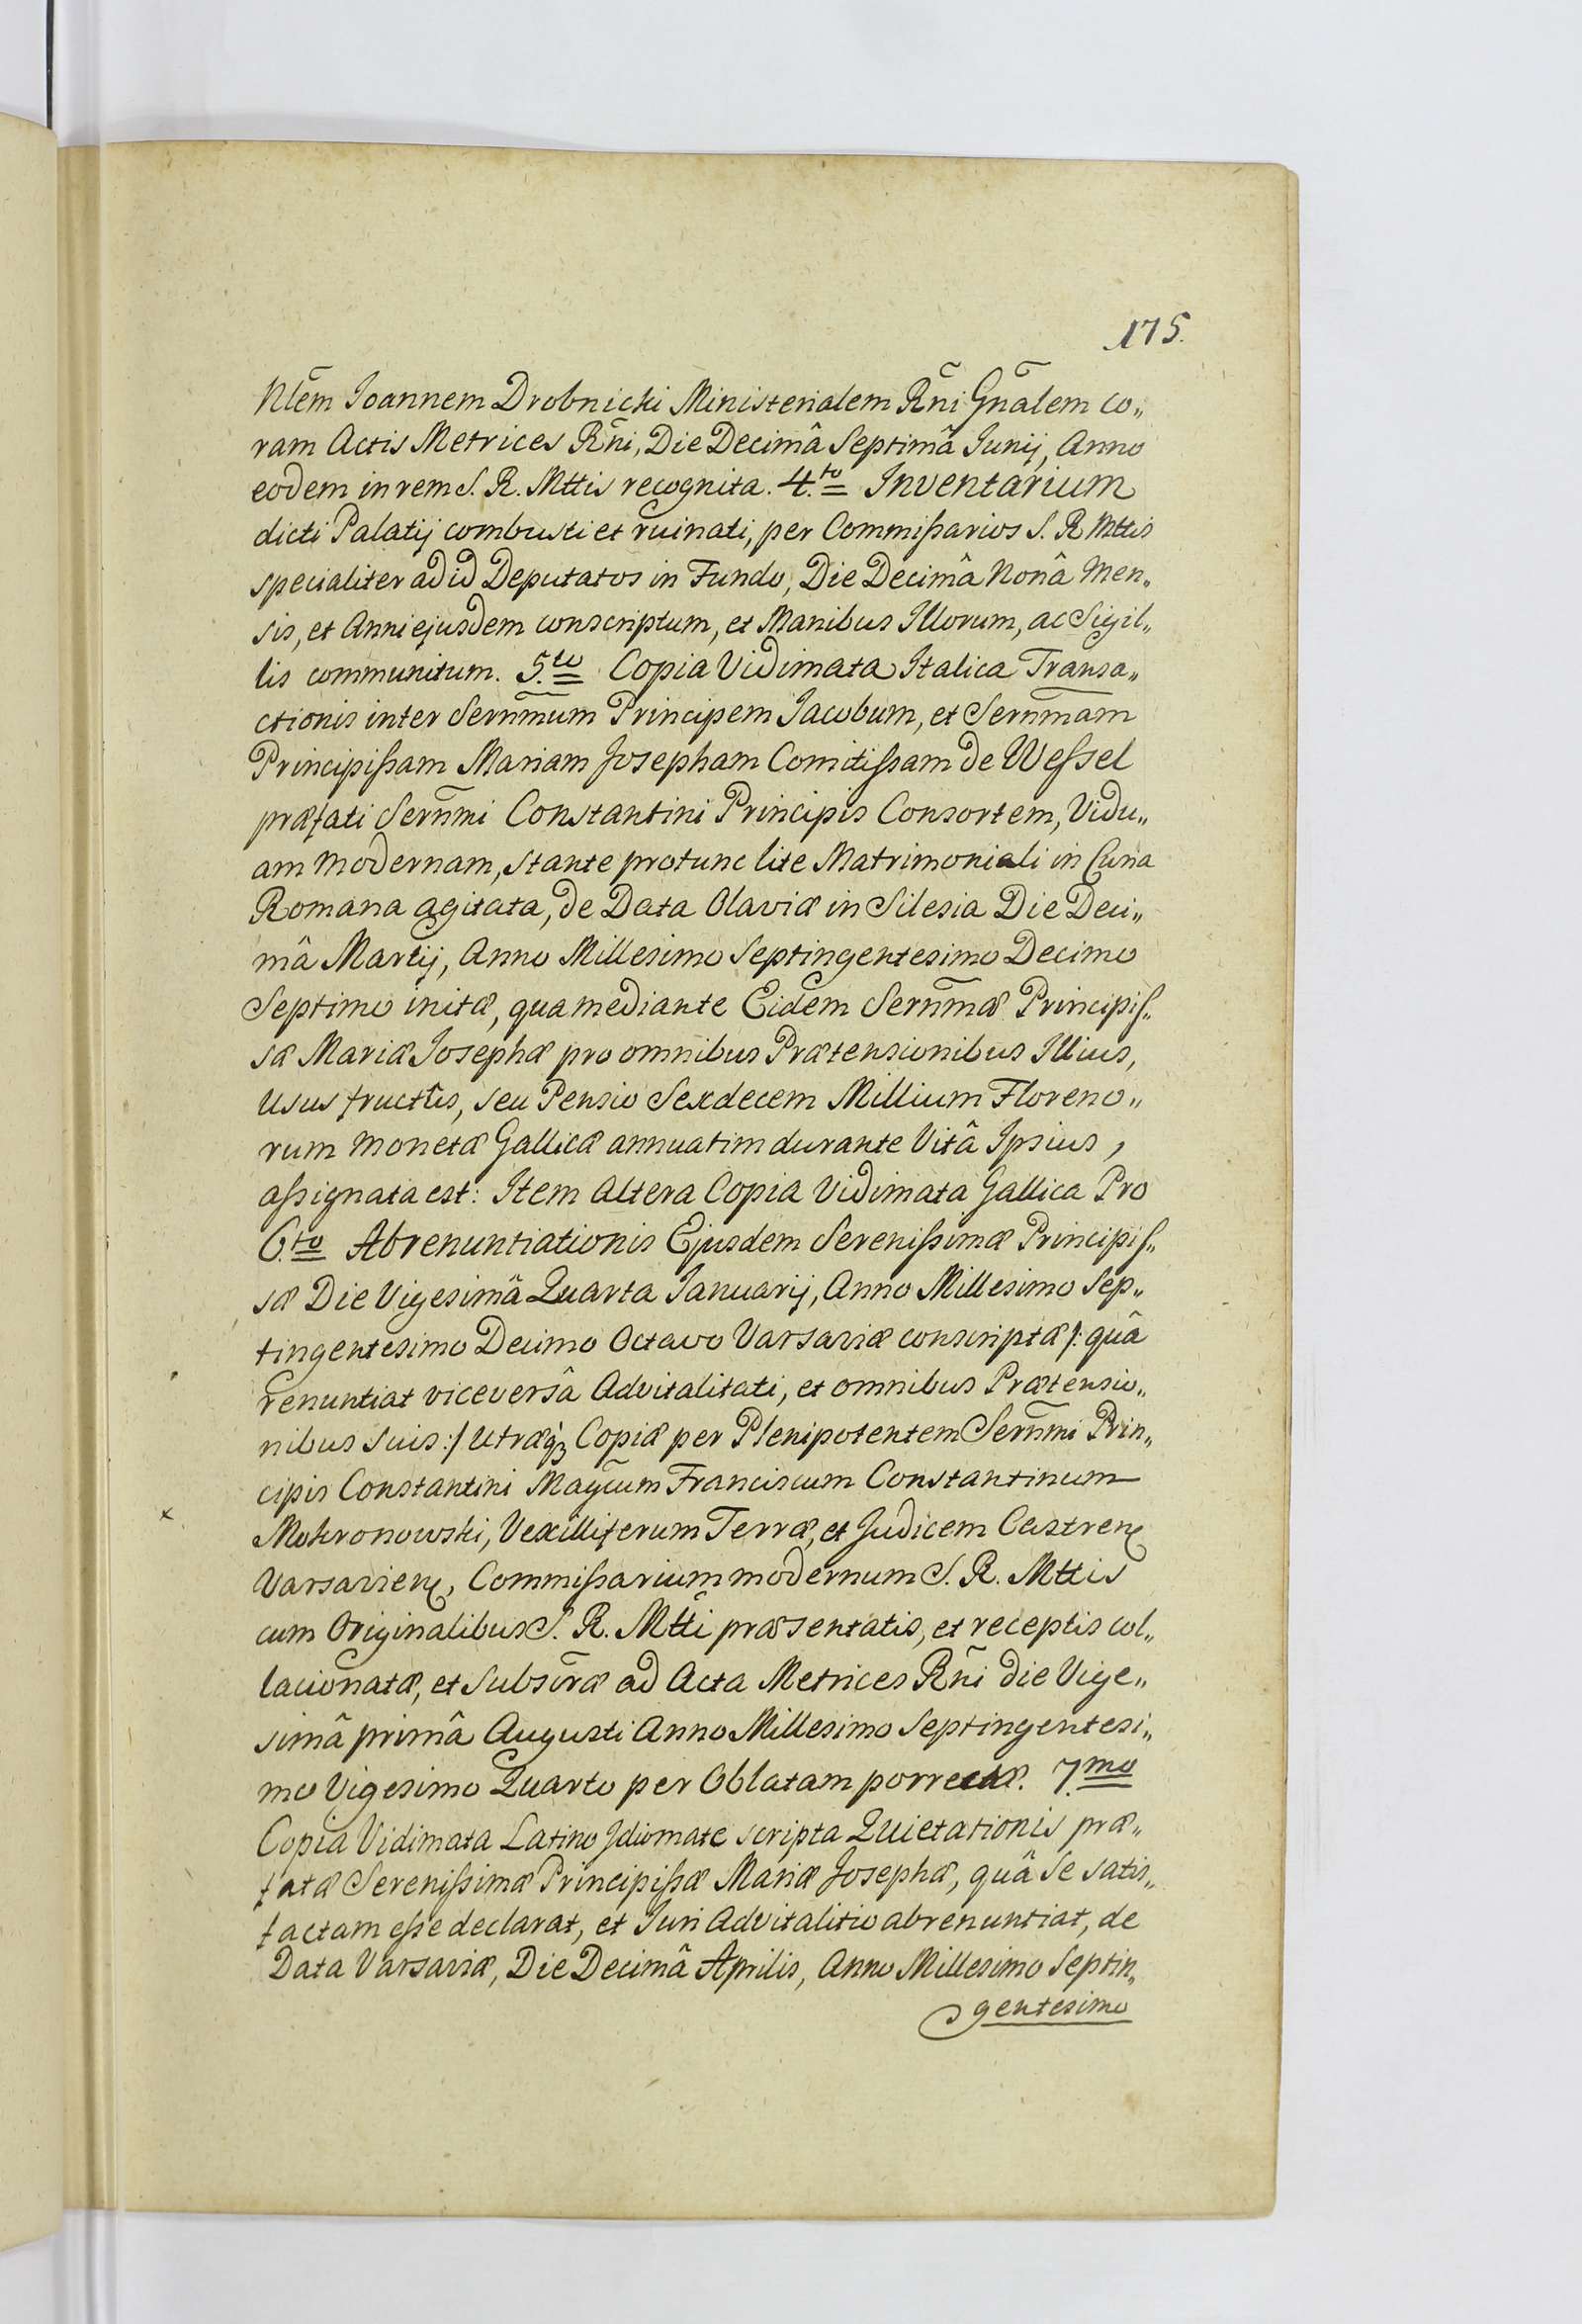 175.
Nlem Joannem Drobnicki Ministerialem Rñi Gnalem co„
ram Actis Metrices Rñi, Die Decimâ Septimâ Junij, Anno
eodem in rem S. R. Mttis recognita. 4.to Inventarium
dicti Palatij combusti et ruinati, per Commißarios S. R Mttis
specialiter ad id Deputatos in Fundo, Die Decimâ Nonâ Men„
sis, et Anni ejusdem conscriptum, et Manibus Illorum, ac Sigil„
lis communitum. 5.to Copia Vidimata Italica Transa„
ctionis inter Sernmum Principem Jacobum, et Sernmam
Principißam Mariam Josepham Comitißam de Weßel
præfati Sernmi Constantini Principis Consortem, Vidu„
am modernam, stante protunc lite Matrimoniali in Curia
Romana agitata, de Data Olaviæ in Silesia Die Deci„
mâ Martij, Anno Millesimo Septingentesimo Decimo
Septimo initæ, qua mediante Eidem Sernmæ Principiß„
sæ Mariæ Josephæ pro omnibus Prætensionibus Illius,
Usus fructûs, seu Pensio Sexdecem Millium Floreno„
rum Monetæ Gallicæ annuatim durante Vitâ Ipsius,
aßignata est: Item Altera Copia Vidimata Gallica Pro
6.to Abrenuntiationis Ejusdem Serenißimæ Principiß„
sæ Die Vigesimâ Quarta Januarij, Anno Millesimo Sep„
tingentesimo Decimo Octavo Varsaviæ conscriptæ /: quâ
renuntiat viceversâ Advitalitati, et omnibus Prætensio„
nibus suis :/ Utræqꝫ Copiæ per Plenipotentem Sernmi Prin„
cipis Constantini Magcum Franciscum Constantinum
Mokronowski, Vexilliferum Terræ, et Judicem Castren̨
Varsavien̨, Commißarium modernum S. R. Mttis
cum Originalibus S. R. Mtti præsentatis, et receptis col„
lacionatæ, et Subscræ ad Acta Metrices Rñi die Vige„
simâ primâ Augusti Anno Millesimo Septingentesi„
mo Vigesimo Quarto per Oblatam porrectæ. 7.mo
Copia Vidimata Latino Idiomate scripta Quietationis præ„
fatæ Serenißimæ Principißæ Mariæ Josephæ, quâ se satis„
factam eße declarat, et Juri Advitalitio abrenuntiat, de
Data Varsaviæ, Die Decimâ Aprilis, Anno Millesimo Septin„
gentesimo